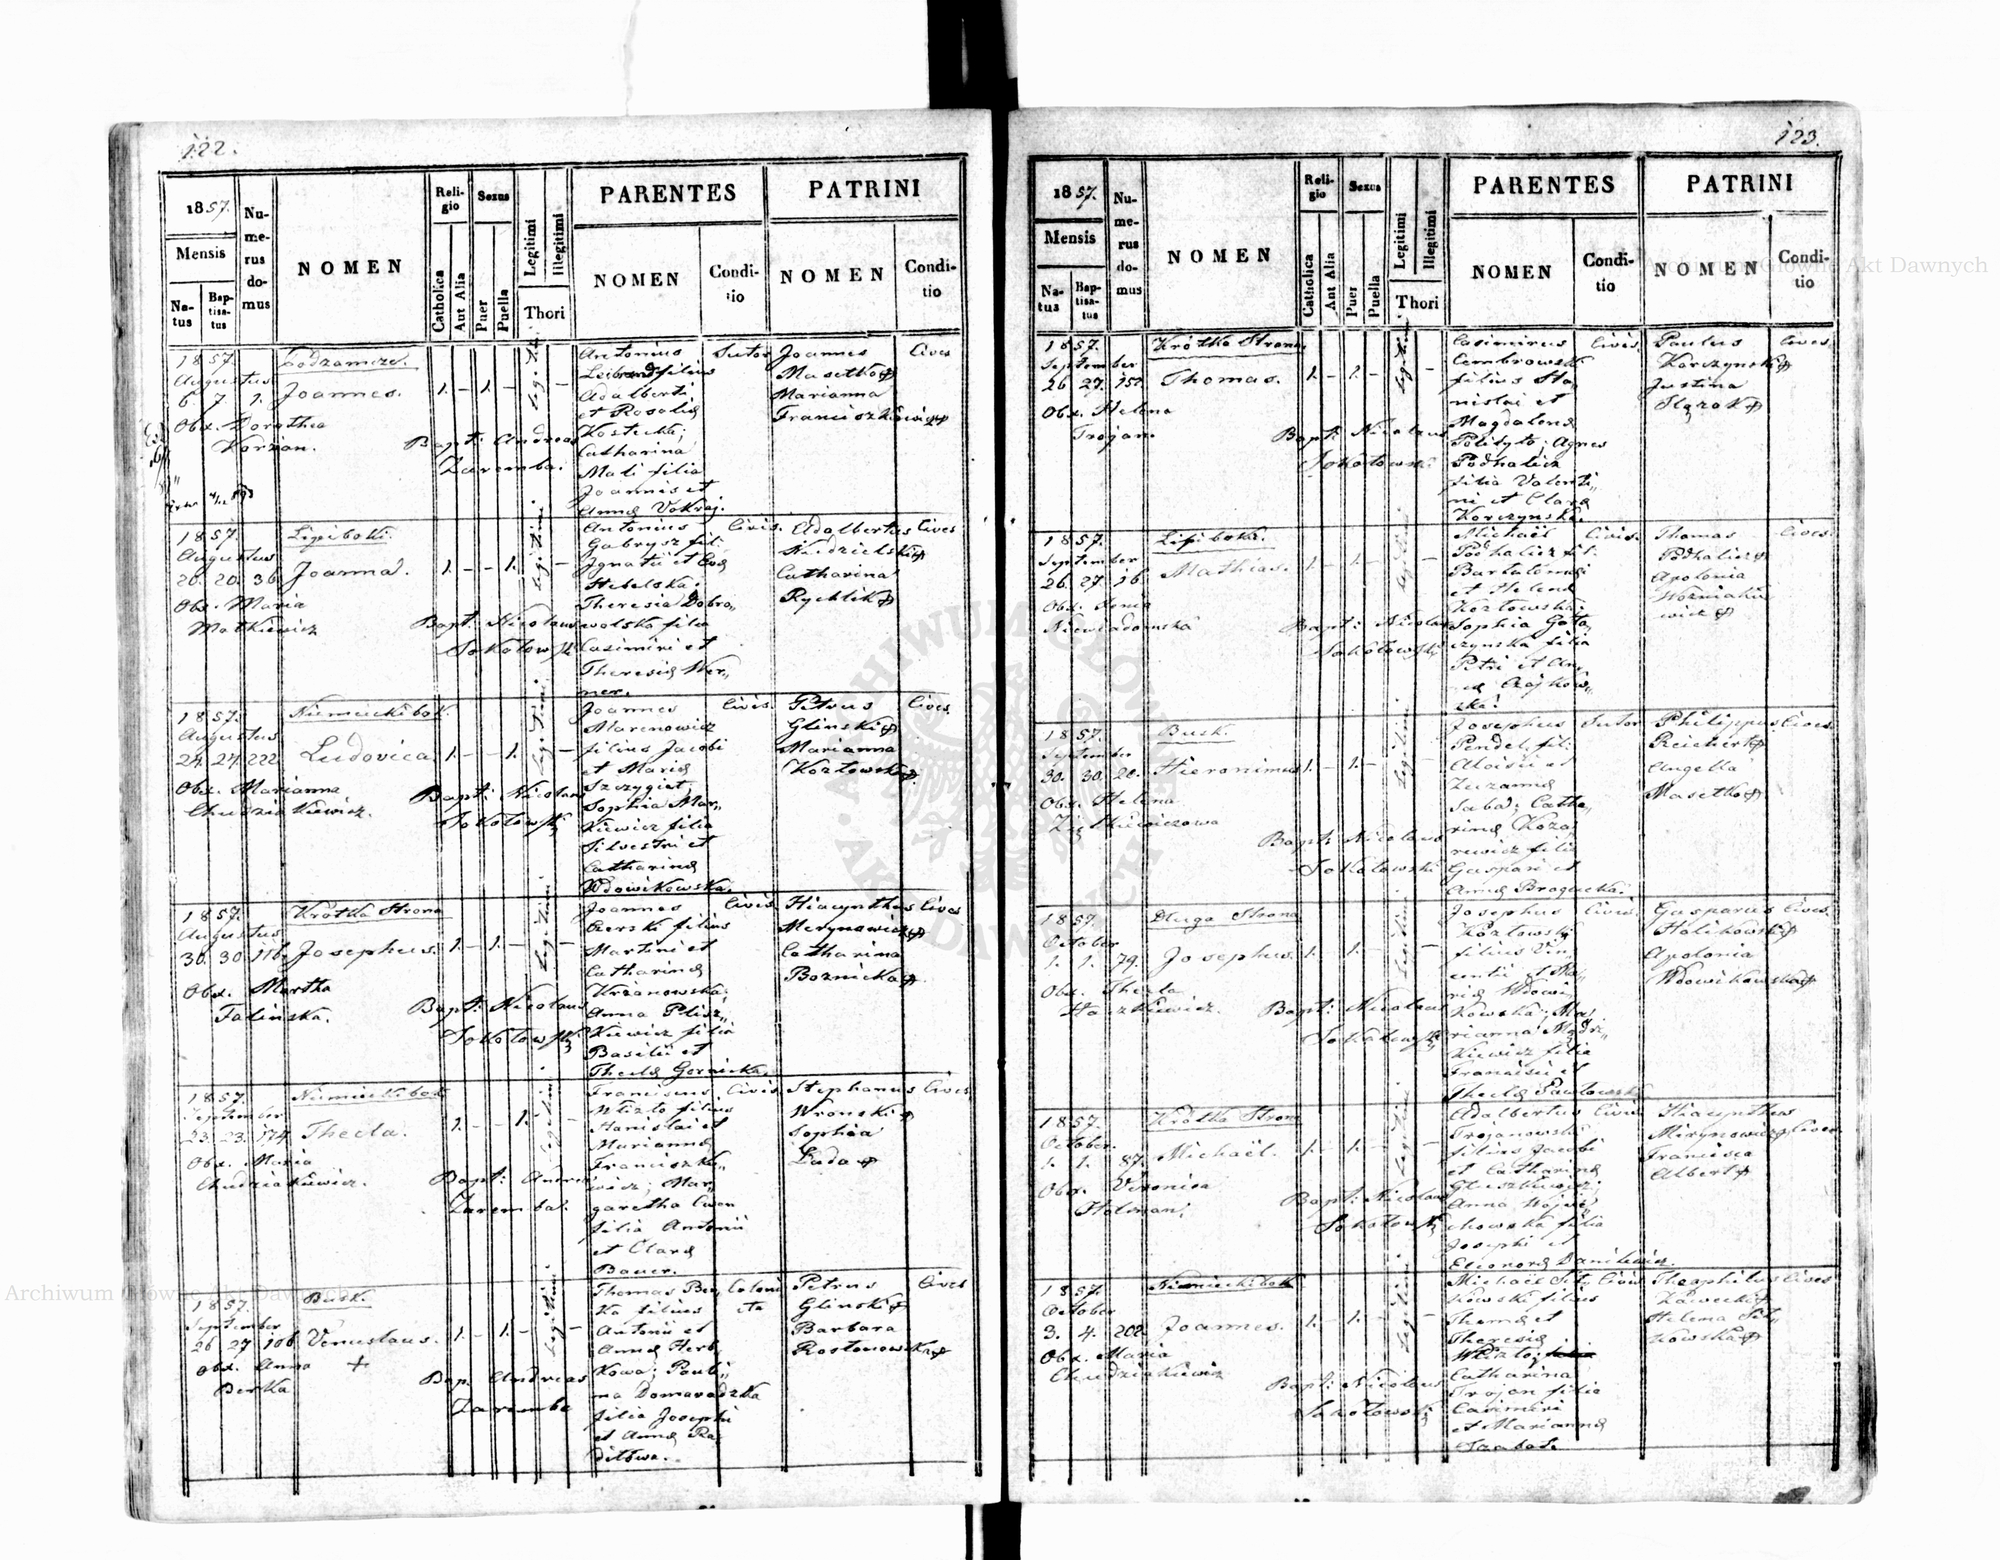 122.
1857.
Mensis
Na-
tus
Bap-
tisa-
tus
Nu-
me-
rus
do-
mus
NOMEN
Reli-
gio
Catholica
Aut Alia
Sexus
Puer
Puella
Legitimi
Illegitimi
Thori
PARENTES
NOMEN
Condi-
tio
PATRINI
NOMEN
Condi-
tio
1857.
Augustus
6. 7. 1.
Obs. Dorothea
Korżan.
Podzamcze.
Joannes.
1. – 1. –
Legitimi
Bapt: Andreas
Zaremba.
Antonius
filius
Adalberti
et Rosaliæ
Kostecka;
Catharina
Mali filia
Joannis et
Annæ Vokraj.
Sutor
Joannes
Masetko
Marianna
Franciszkiewicz
Cives
1857.
Augustus
20. 20. 36
Obs. Maria
Matkiewicz
Lipiboki.
Joanna.
1. – – 1.
Legitimi
Bapt: Nicolaus
Sokołowski
Antonius
Gabrysz fil:
Ignatii et Evæ
Stebelska;
Theresia Dobro„
wolska filia
Casimiri et
Theresiæ Wer„
ner.
Civis.
Adalbertus
Kudzielski
Catharina
Rychlik
Cives
1857.
Augustus
24. 27. 222
Obs. Marianna
Chudziakiewicz.
Niemieckibok.
Ludovica
1. – – 1.
Legitimi
Bapt: Nicolaus
Sokołowski
Joannes
Marcnowicz
filius Jacobi
et Mariæ
Szczygieł,
Sophia Mar„
kiewicz filia
Silvestri et
Catharinæ
Wdowikowska.
Civis.
Petrus
Glinski
Marianna
Kozłowska
Cives
1857.
Augustus
30. 30. 116.
Obs. Martha
Falinska.
Krótka Strona
Josephus.
1. – 1. –
Legitimi
Bapt: Nicolaus
Sokołowski
Joannes
Czerski filius
Martini et
Catharinæ
Krzanowska;
Anna Plisz„
kiewicz filia
Basilii et
Theclæ Gernicka.
Civis
Hiacynthus
Merynowicz
Catharina
Boznicka
Cives
1857.
September
23. 23. 174.
Obs. Maria
Chudziakiewicz.
Niemieckibok
Thecla.
1. – – 1.
Legitimi
Bapt: Andreas
Zaremba.
Franciscus
Wlizło filius
Stanislai et
Mariannæ
Franciszkie„
wicz; Mar„
garetha Cwen
filia Antonii
et Claræ
Bauer.
Civis
Stephanus
Wronski
Sophia
Łada
Cives
1857.
September
26 27 106
Obs. Anna
Berka
Busk.
Venuslaus.
1. – 1. –
Legitimi
Bap. Andreas
Zaremba
Thomas Ber„
ka filius
Antonii et
Annæ Herb„
kowa; Pauli„
na Domaradzka
filia Josephi
et Annæ Ra„
diłowa.
Coloni
sta
Petrus
Glinski
Barbara
Rostonowska
Cives
123.
1857.
Mensis
Na-
tus
Bap-
tisa-
tus
Nu-
me-
rus
do-
mus
NOMEN
Reli-
gio
Catholica
Aut Alia
Sexus
Puer
Puella
Legitimi
Illegitimi
Thori
PARENTES
NOMEN
Condi-
tio
PATRINI
NOMEN
Condi-
tio
1857.
September
26 27. 152.
Obs. Helena
Trojan.
Krótka Strona
Thomas.
1. – 1. –
Legitimi
Bapt: Nicolaus
Sokołowski
Casimirus
Cembrowski
filius Sta„
nislai et
Magdalenæ
Polityło; Agnes
Podhalicz
filia Valenti„
ni et Claræ
Korczynska.
Civis.
Paulus
Korczynski
Justina
Slązak
Cives.
1857.
September
26. 27. 16.
Obs. Xenia
Niewiadomska
Lipiboki.
Mathias.
1. – 1. –
Legitimi
Bapt: Nicolaus
Sokołowski
Michaël
Podhalicz fil:
Bartolomæi
et Helenæ
Kozłowska;
Sophia Goła
czynska filia
Petri et An„
næ Czajkow„
ska.
Civis.
Thomas
Podhalicz
Apolonia
Wozniakie
wicz
Cives.
1857.
September
30. 30. 20.
Obs. Helena
Ziętkiewiczowa
Busk.
Hieronimus
1. – 1. –
Legitimi
Bapt: Nicolaus
Sokołowski
Josephus
Pendel, fil:
Aloisii et
Zuzannæ
Saba; Catha„
rina Koza„
rewicz filia
Gaspari et
Annæ Bragucka.
Sutor
Philippus
Reichert
Angella
Masetko
Cives.
1857.
October
1. 1. 79.
Obs. Thecla
Haszkiewicz.
Długa Strona
Josephus.
1. – 1. –
Legitimi
Bapt: Nicolaus
Sokołowski
Josephus
Kozłowski
filius Vin„
centii et Ma„
riæ Wdowi„
kowska; Ma„
rianna Mądr„
kiewicz filia
Francisci et
Theclæ Pawłowska
Civis.
Gasparus
Holikowski
Apolonia
Wdowikowska
Cives.
1857.
October.
1. 1. 87.
Obs. Veronica
Holman.
Krótka Strona
Michaël.
1. – 1. –
Legitimi
Bapt: Nicolaus
Sokołowski
Adalbertus
Trojanowski
filius Jacobi
et Catharinæ
Głuszkiewicz;
Anna Wojcie„
chowska filia
Josephi et
Eleonoræ Danilewicz.
Civis
Hiacynthus
Mirynowicz
Francisca
Albert
Cives
1857.
October
3. 4. 202
Obs. Maria
Chudziakiewicz
Niemieckibok
Joannes.
1. – 1. –
Legitimi
Bapt: Nicolaus
Sokołowski
Michaël Sit„
kowski filius
Thomæ et
Theresiæ
Wlizło;
Catharina
Trojan filia
Casimiri
et Mariannæ
Szabat.
Civis
Theophilus
Zawecki
Helena Sit„
kowska
Cives
Archiwum Główne Akt Dawnych
Archiwum Główne Akt Dawnych
ARCHIWUM GŁÓWNE
AKT DAWNYCH